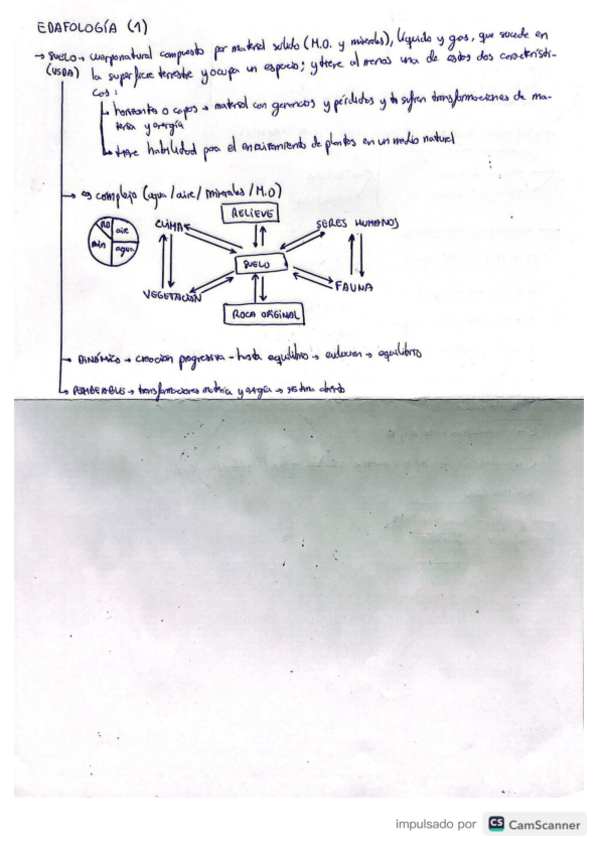 EDAFOLOGÍA (1)
→ SUELO → cuerpo natural compuesto por material sólido (M.O. y minerales), líquido y gas, que sucede en
(USDA) la superficie terrestre y ocupa un espacio; y tiene al menos una de estas dos característi-
cas:
horizonte o capas → material con ganancias y pérdidas y sufren transformaciones de ma-
teria y energía
tiene habilidad para el enraizamiento de plantas en un medio natural
→ es complejo (agua / aire / minerales / M.O)
MO aire
min agua
RELIEVE
CLIMA SERES HUMANOS
SUELO
VEGETACIÓN FAUNA
ROCA ORIGINAL
→ DINÁMICO → creación progresiva - hasta equilibrio → evolución → equilibrio
→ PERMEABLE → transformaciones materia y energía → sistema abierto
impulsado por CS CamScanner